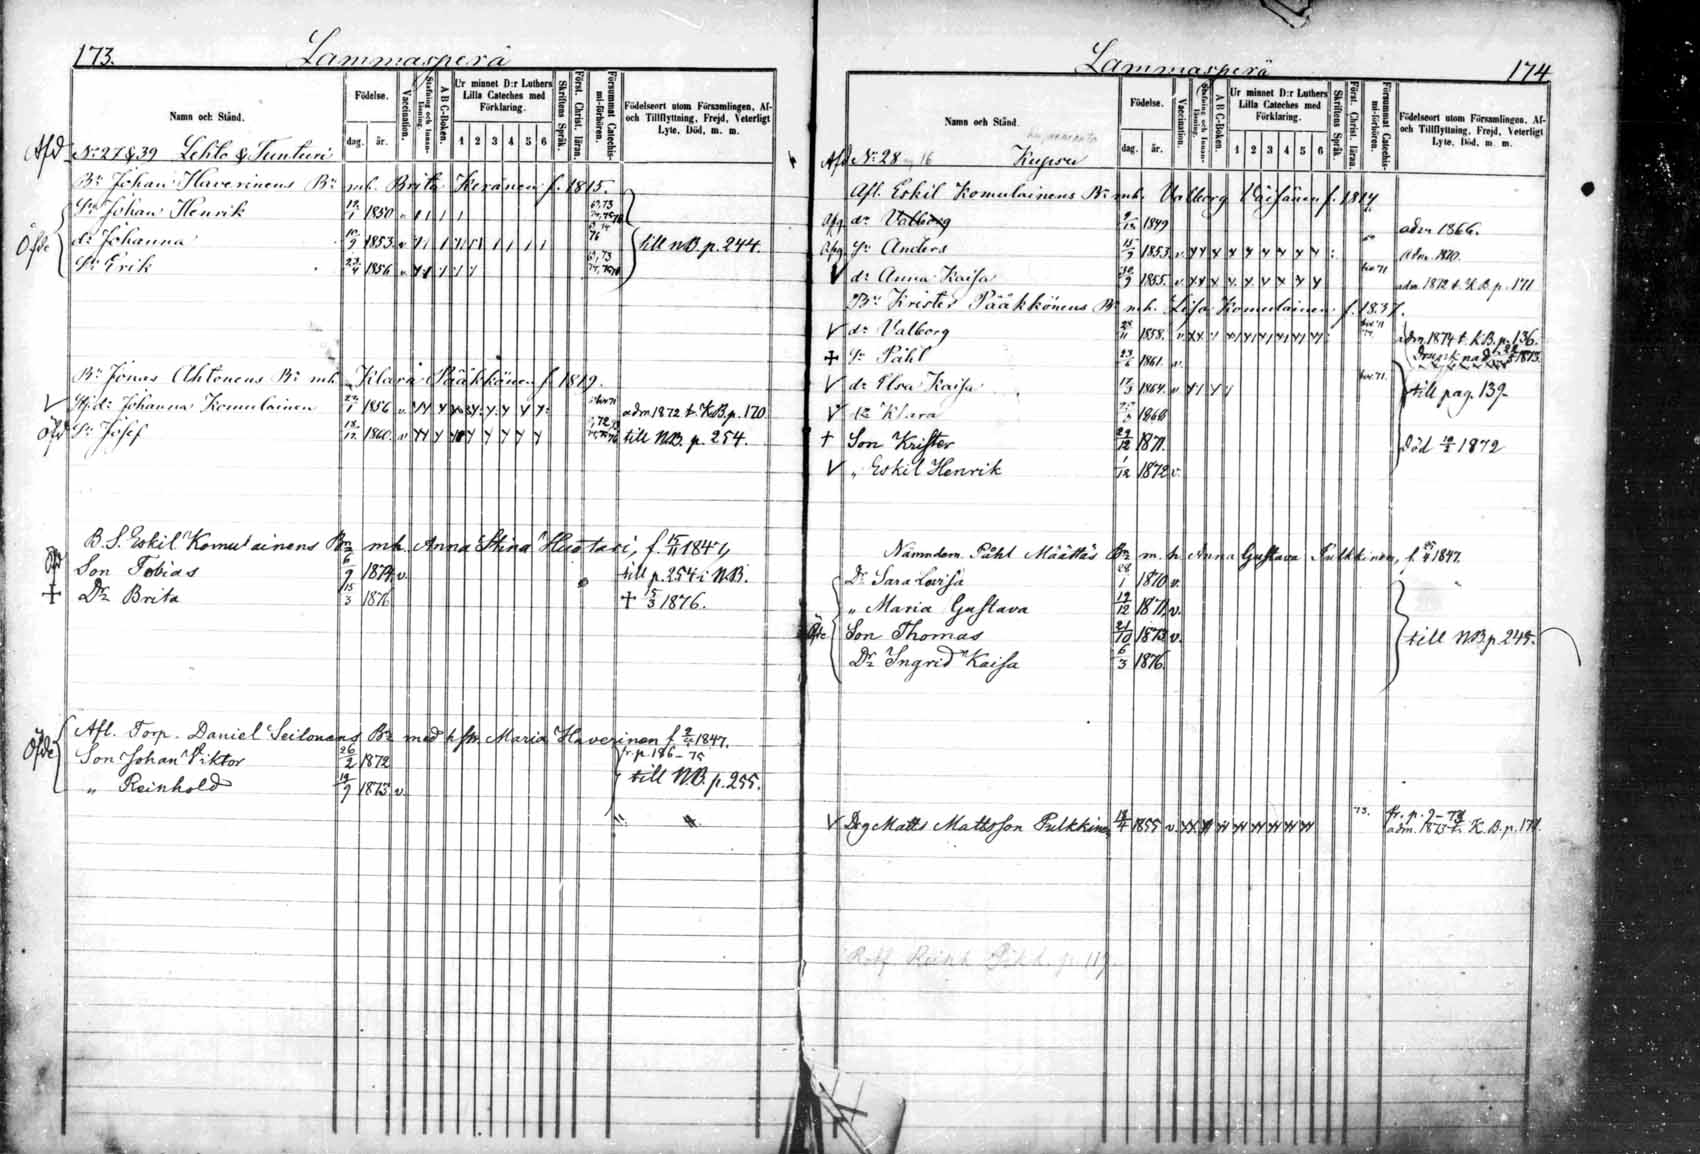 173.
Lammasperä
Namn och Stånd.
Födelse.
dag.
år.
Vaccination.
Stafning och Innan-läsning.
A B C-Boken.
Ur minnet D:r Luthers Lilla Cateches med Förklaring.
1 2 3 4 5 6
Skriftens Språk.
Först. Christ. läran.
Försummat Catechis-mi-förhören.
Födelseort utom Församlingen, Af- och Tillflyttning, Frejd, Veterligt Lyte, Död, m. m.
Afd No 27 & 39 Lehto & Tunturi
Bn Johan Haverinens Bn mh. Brita Keränen f. 1815.
Sn Johan Henrik 1850
Öfde dr Johanna 1853 till NB. p. 244.
Sn Erik 23/4 1856
Bn Jonas Ahtonens Bn mh Klara Pääkkönen f. 1819.
dr Johanna Komulainen 1856 adm 1872 t. KB. p. 170
Öfd Sn Josef 1860 till NB. p. 254.
B. S. Eskil Komulainens Bn mh. Anna Stina Huotari, f. 1847,
Son Tobias 1874 v. till p. 254 i NB.
+ Dr Brita 15/3 1876 + 15/3 1876.
Afl. Torp. Daniel Seilonens Bn med hstr. Maria Haverinen f. 1847.
Öfde Son Johan Viktor 26/2 1872 fr. p. 186-75
" Reinhold 1873 v. till NB. p. 255.
Lammasperä
174
Namn och Stånd.
Födelse.
dag.
år.
Vaccination.
Stafning och Innan-läsning.
A B C-Boken.
Ur minnet D:r Luthers Lilla Cateches med Förklaring.
1 2 3 4 5 6
Skriftens Språk.
Först. Christ. läran.
Försummat Catechis-mi-förhören.
Födelseort utom Församlingen, Af- och Tillflyttning, Frejd, Veterligt Lyte, Död, m. m.
Afd No 28 16
Afl. Eskil Komulainens Bn mh. Valborg Väisänen f. 1814
dr Valborg 1849 adm 1866.
Sn Anders 1853 v. adm. 1870.
V dr Anna Kaisa 1855. v. adm 1872 t. KB. p. 171
Bn Krister Pääkkönens Bn mh. Lisa Komulainen f. 1837.
V dr Valborg 1858. adm. 1874 t. KB. p. 136.
+ Sn Påhl 1861. v. 1873.
V dr Elsa Kaisa 1864. v till pag. 139.
V dr Klara 1866
+ Son Krister 29/12 1871. död 1872
V " Eskil Henrik 1/12 1872 v.
Nämndem. Påhl Määttäs Bn m. h. Anna Gustava Pulkkinen, f. 1847.
Dr Sara Lovisa 28/1 1870 v.
" Maria Gustava 19/12 1871 v.
Öfde Son Thomas 21/10 1873 v. till NB p. 245.
Dr Ingrid Kaisa 6/3 1876.
V Drg Matts Mattsson Pulkkinen 1855 v. 73. fr. p. 9-73
K. B. p. 171.